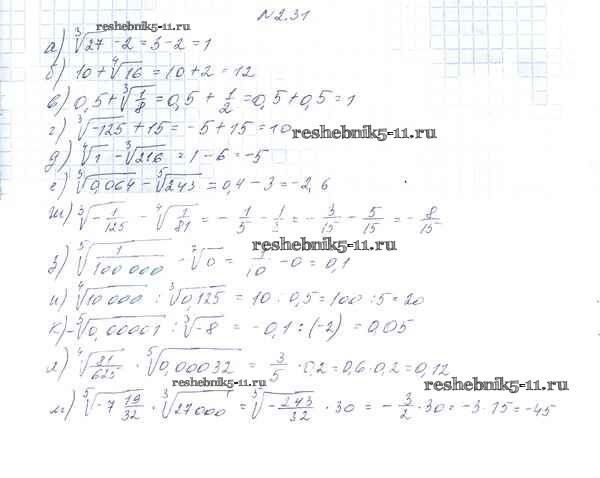 №2.31
reshebnik5-11.ru
а) ∛27 - 2 = 3 - 2 = 1
б) 10 + ∜16 = 10 + 2 = 12
в) 0,5 + ∛(1/8) = 0,5 + 1/2 = 0,5 + 0,5 = 1
г) ∛-125 + 15 = -5 + 15 = 10
reshebnik5-11.ru
д) ∜1 - ∛216 = 1 - 6 = -5
е) ∛0,064 - ⁵√243 = 0,4 - 3 = -2,6
ж) ∛(-1/125) - ∜(1/81) = - 1/5 - 1/3 = - 3/15 - 5/15 = - 8/15
reshebnik5-11.ru
з) ⁵√(1/100 000) - ⁷√0 = 1/10 - 0 = 0,1
и) ∜10 000 : ∛0,125 = 10 : 0,5 = 100 : 5 = 20
к) -⁵√0,00001 : ∛-8 = -0,1 : (-2) = 0,05
л) ∜(81/625) · ⁵√0,00032 = 3/5 · 0,2 = 0,6 · 0,2 = 0,12
reshebnik5-11.ru
reshebnik5-11.ru
м) ⁵√(-7 19/32) · ∛27000 = ⁵√(-243/32) · 30 = - 3/2 · 30 = -3 · 15 = -45